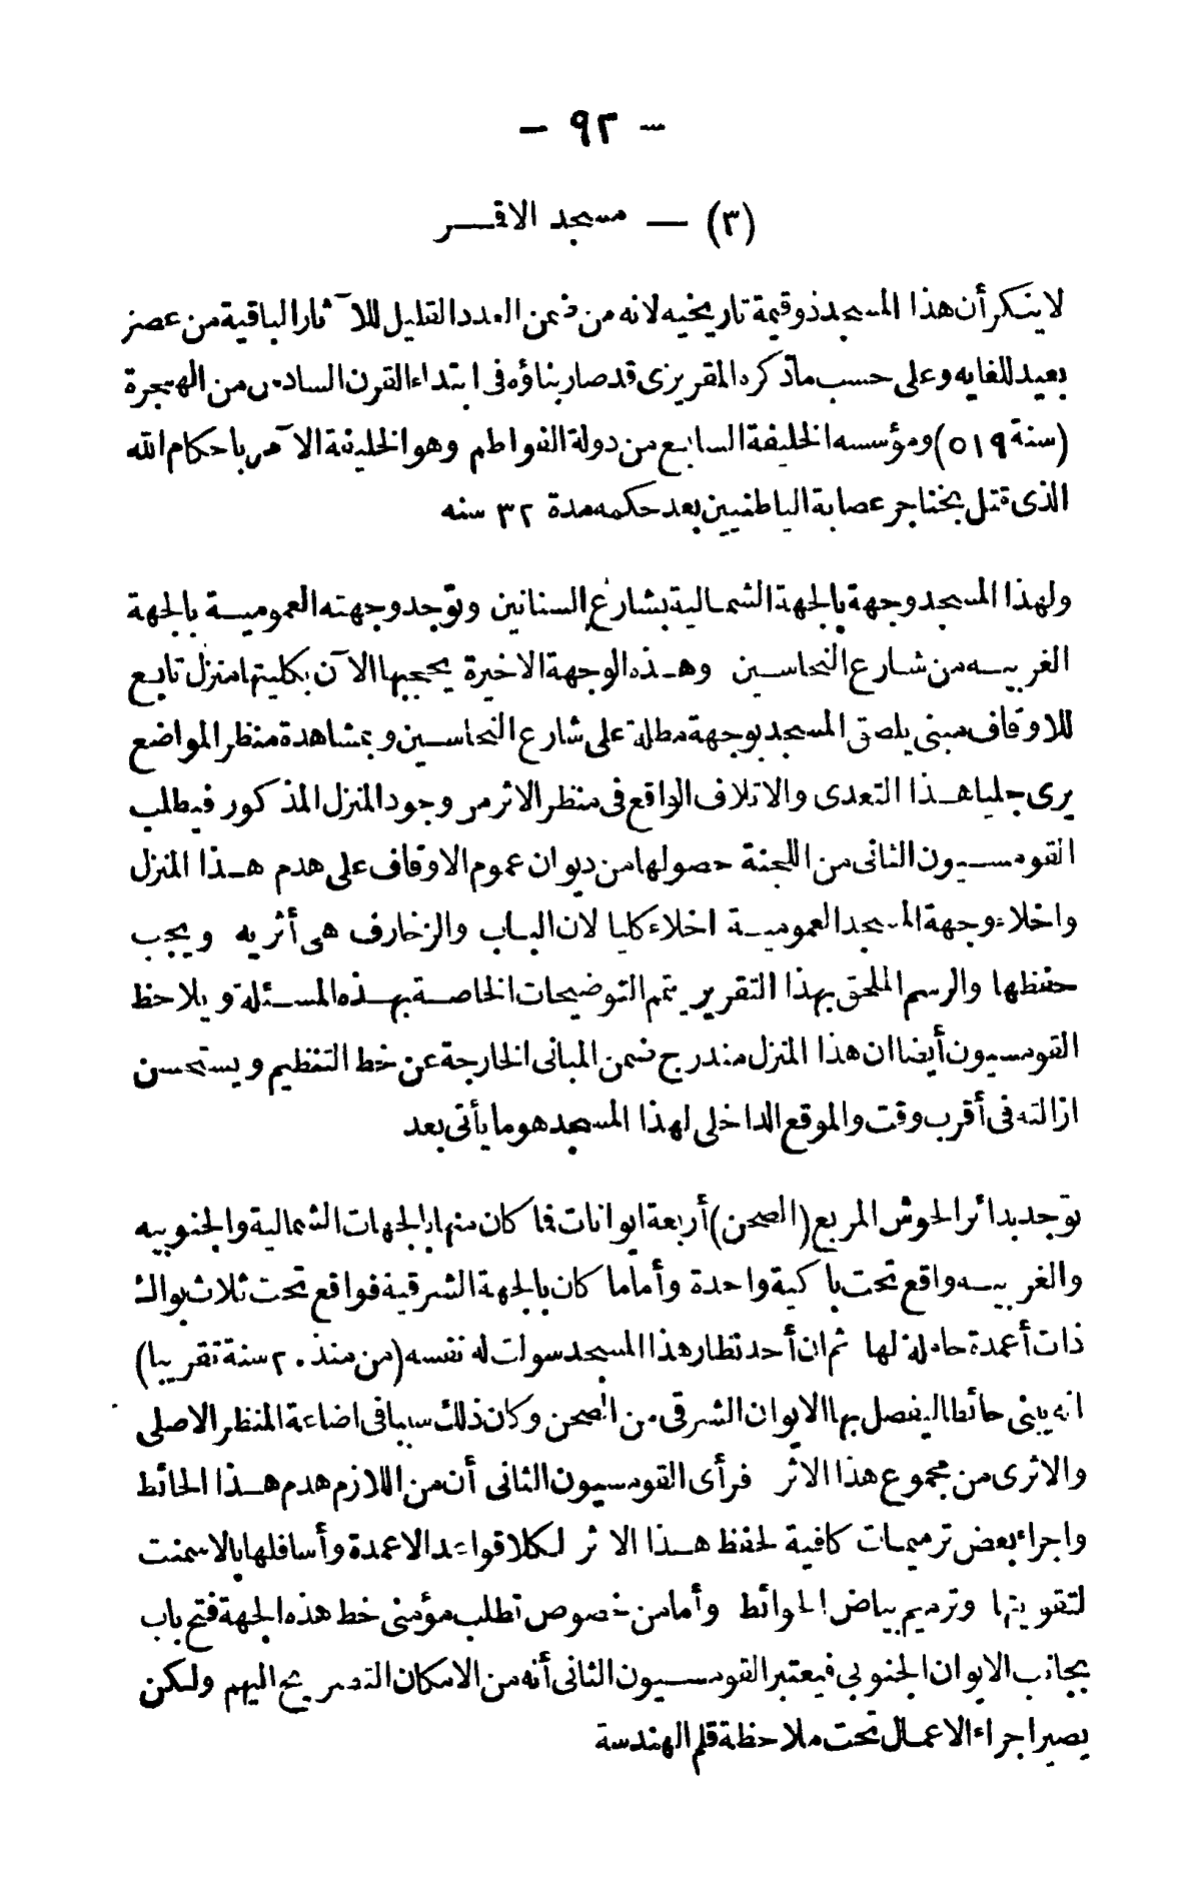 - ٩٢ -
(٣) — مسجد الاقمر
لا ينكر أن هذا المسجد ذو قيمة تاريخيه لانه من ضمن العدد القليل للآثار الباقية من عصر
بعيد للغايه وعلى حسب ما ذكره المقريزى قد صار بناؤه فى ابتداء القرن السادس من الهجرة
(سنة ٥١٩) ومؤسسه الخليفة السابع من دولة الفواطم وهو الخليفة الآمر باحكام الله
الذى قتل بخناجر عصابة الباطنيين بعد حكمه مدة ٣٢ سنه
ولهذا المسجد وجهة بالجهة الشمالية بشارع السنانين وتوجد وجهته العمومية بالجهة
الغربيه من شارع النحاسين وهذه الوجهة الاخيرة يحجبها الآن بكليتها منزل تابع
للاوقاف مبنى يلصق المسجد بوجهة مطلة على شارع النحاسين وبمشاهدة منظر المواضع
يرى جليا هذا التعدى والاتلاف الواقع فى منظر الاثر من وجود المنزل المذكور فيطلب
القومسيون الثانى من اللجنة حصولها من ديوان عموم الاوقاف على هدم هذا المنزل
واخلاء وجهة المسجد العمومية اخلاء كليا لان الباب والزخارف هى أثريه ويجب
حفظها والرسم الملحق بهذا التقرير يتمم التوضيحات الخاصة بهذه المسئلة ويلاحظ
القومسيون أيضا ان هذا المنزل مندرج ضمن المبانى الخارجة عن خط التنظيم ويستحسن
ازالته فى أقرب وقت والموقع الداخلى لهذا المسجد هو ما يأتى بعد
توجد بدائر الحوش المربع (الصحن) أربعة ايوانات فما كان منها بالجهات الشمالية والجنوبيه
والغربيه واقع تحت باكية واحدة وأما ما كان بالجهة الشرقية فواقع تحت ثلاث بوائك
ذات أعمدة حاملة لها ثم ان أحد نظار هذا المسجد سولت له نفسه (من منذ ٢٠ سنة تقريبا)
انه يبنى حائطا ليفصل بها الايوان الشرقى من الصحن وكان ذلك سببا فى اضاعة المنظر الاصلى
والاثرى من مجموع هذا الاثر فرأى القومسيون الثانى أن من اللازم هدم هذا الحائط
واجراء بعض ترميمات كافية لحفظ هذا الاثر لكلا قواعد الاعمدة وأسافلها بالاسمنت
لتقويتها وترميم بياض الحوائط وأما من خصوص تطلب مؤمنى خط هذه الجهة فتح باب
بجانب الايوان الجنوبى فيعتبر القومسيون الثانى أنه من الامكان التصريح اليهم ولكن
يصير اجراء الاعمال تحت ملاحظة قلم الهندسة